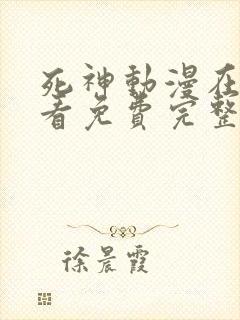 死神動漫在
看免費完整
徐晨霞